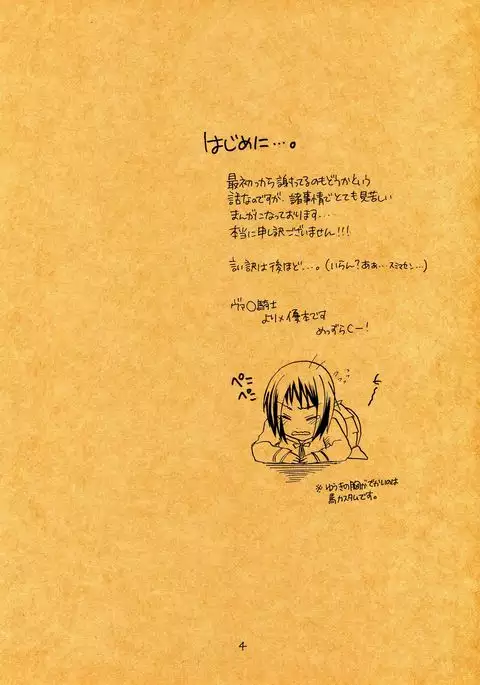 はじめに…。
最初っから謝ってるのもどうかという
話なのですが、諸事情でとても見苦しい
まんがになっております…
本当に申し訳ございません!!!
言い訳は後ほど…。(いらん?あぁ…スミマセン…)
ヴァ○騎士
より×優本です
めっずらC-!
ペこ
ペこ
※ゆうきの胸がでかいのは
馬カスタムです。
4